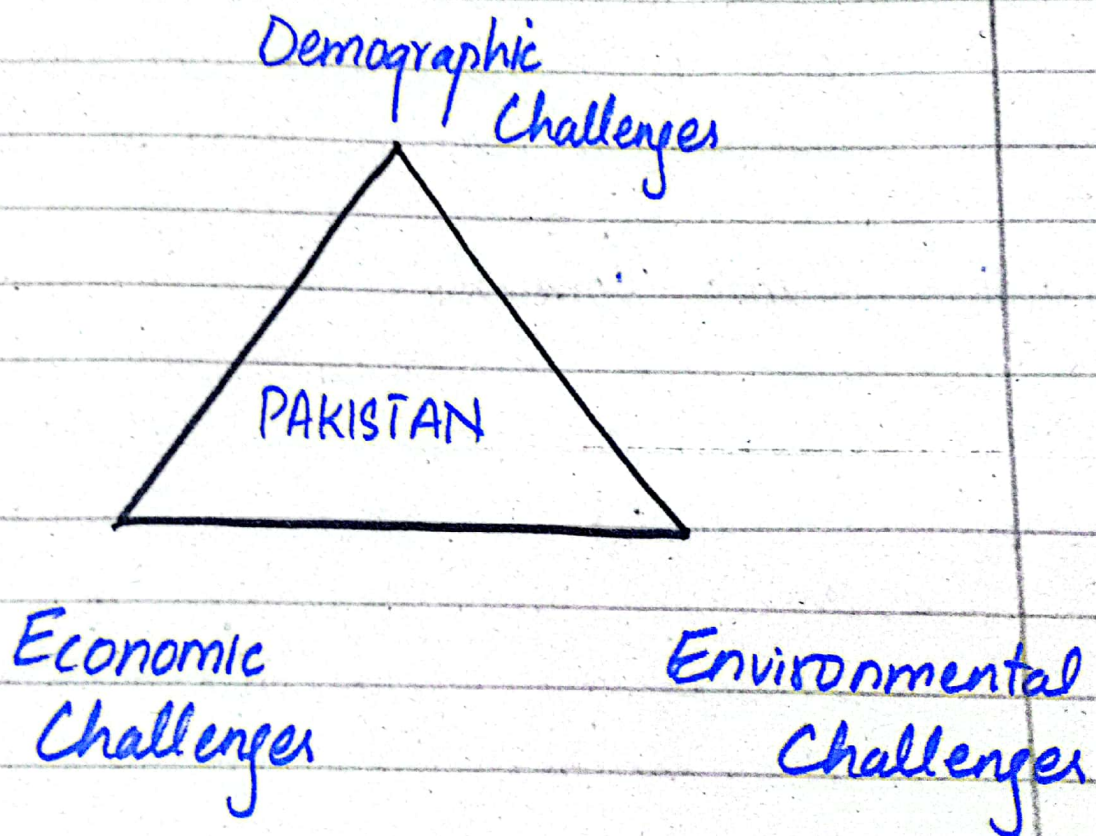 Demographic
Challenges
PAKISTAN
Economic
Challenges
Environmental
Challenges